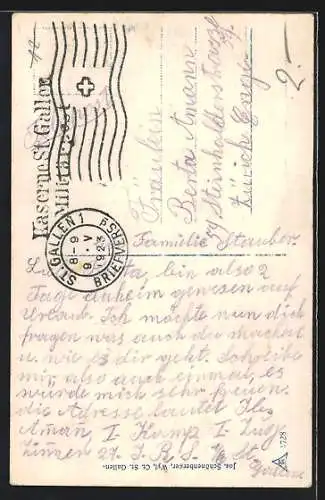 12
2.-
Kaserne St. Gallen
Militärpost
ST. GALLEN 1
BRIEFVERS.
8-9
9. V
1923
Fräulein
Berta Amann
Steinhaldenstrasse
59.
Zürich Enge
Familie Stauber.
Liebe Berta, bin also 2
Tage anheim gewesen auf
Urlaub. Ich möchte nun dich
fragen was auch du machst
u. wie es dir geht. Schreibe
mir also auch einmal, es
würde mich sehr freuen.
die Adresse lautet
Amann, I. Komp I. Zug
Zimmer 27. St.
Gallen
Jos. Schönenberger, Wyl, Ct. St. Gallen.
5728